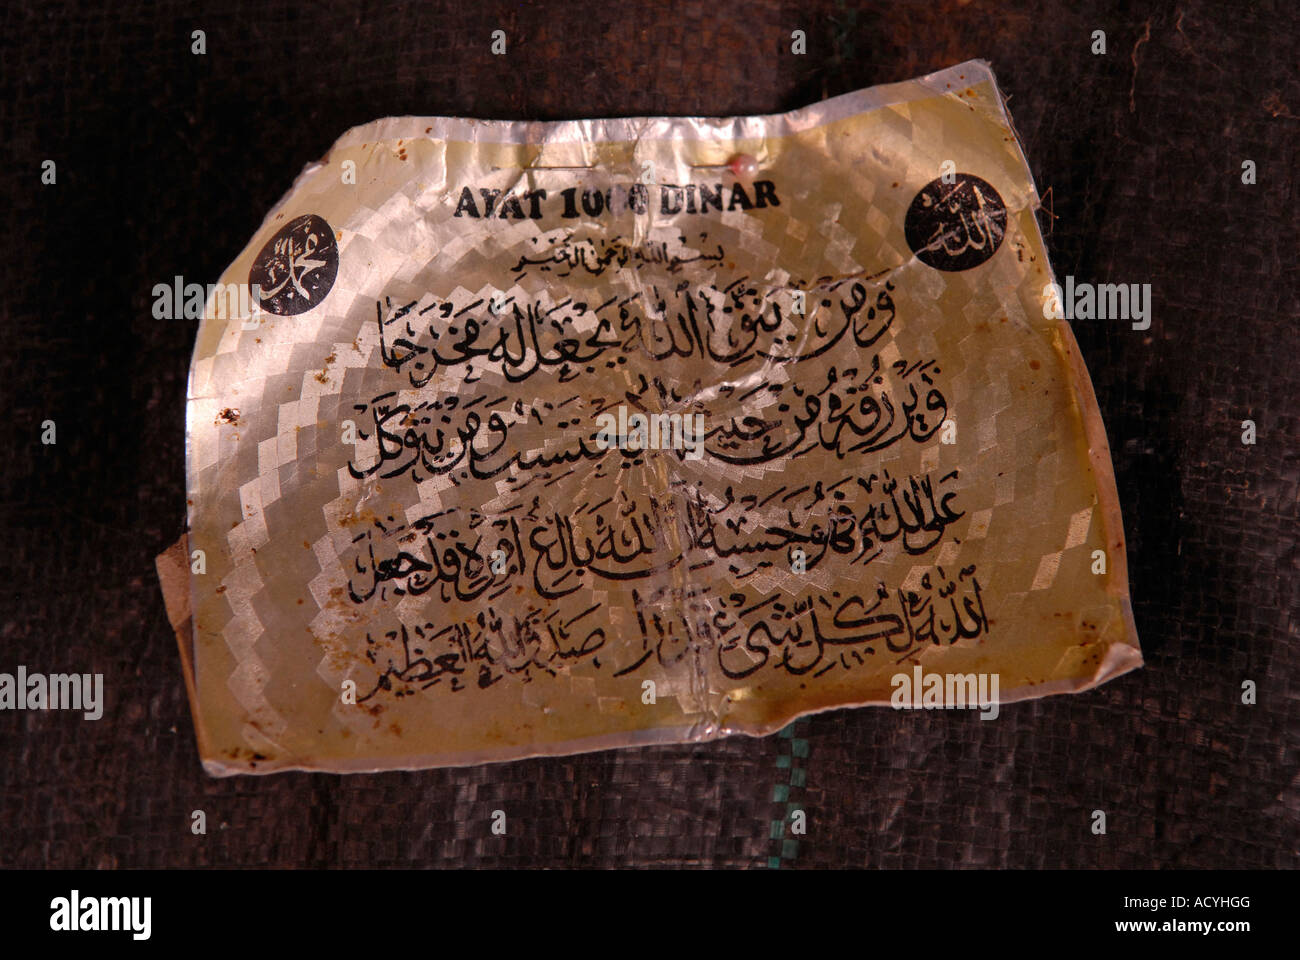 AYAT 1000 DINAR
محمد
الله
بسم الله الرحمن الرحيم
وَمَنْ يَتَّقِ اللهَ يَجْعَلْ لَهُ مَخْرَجًا
وَيَرْزُقْهُ مِنْ حَيْثُ لَا يَحْتَسِبُ وَمَنْ يَتَوَكَّلْ
عَلَى اللهِ فَهُوَ حَسْبُهُ إِنَّ اللهَ بَالِغُ أَمْرِهِ قَدْ جَعَلَ
اللهُ لِكُلِّ شَيْءٍ قَدْرًا صَدَقَ اللهُ الْعَظِيْمُ
alamy
alamy
alamy
a
alamy
Image ID: ACYHGG
www.alamy.com